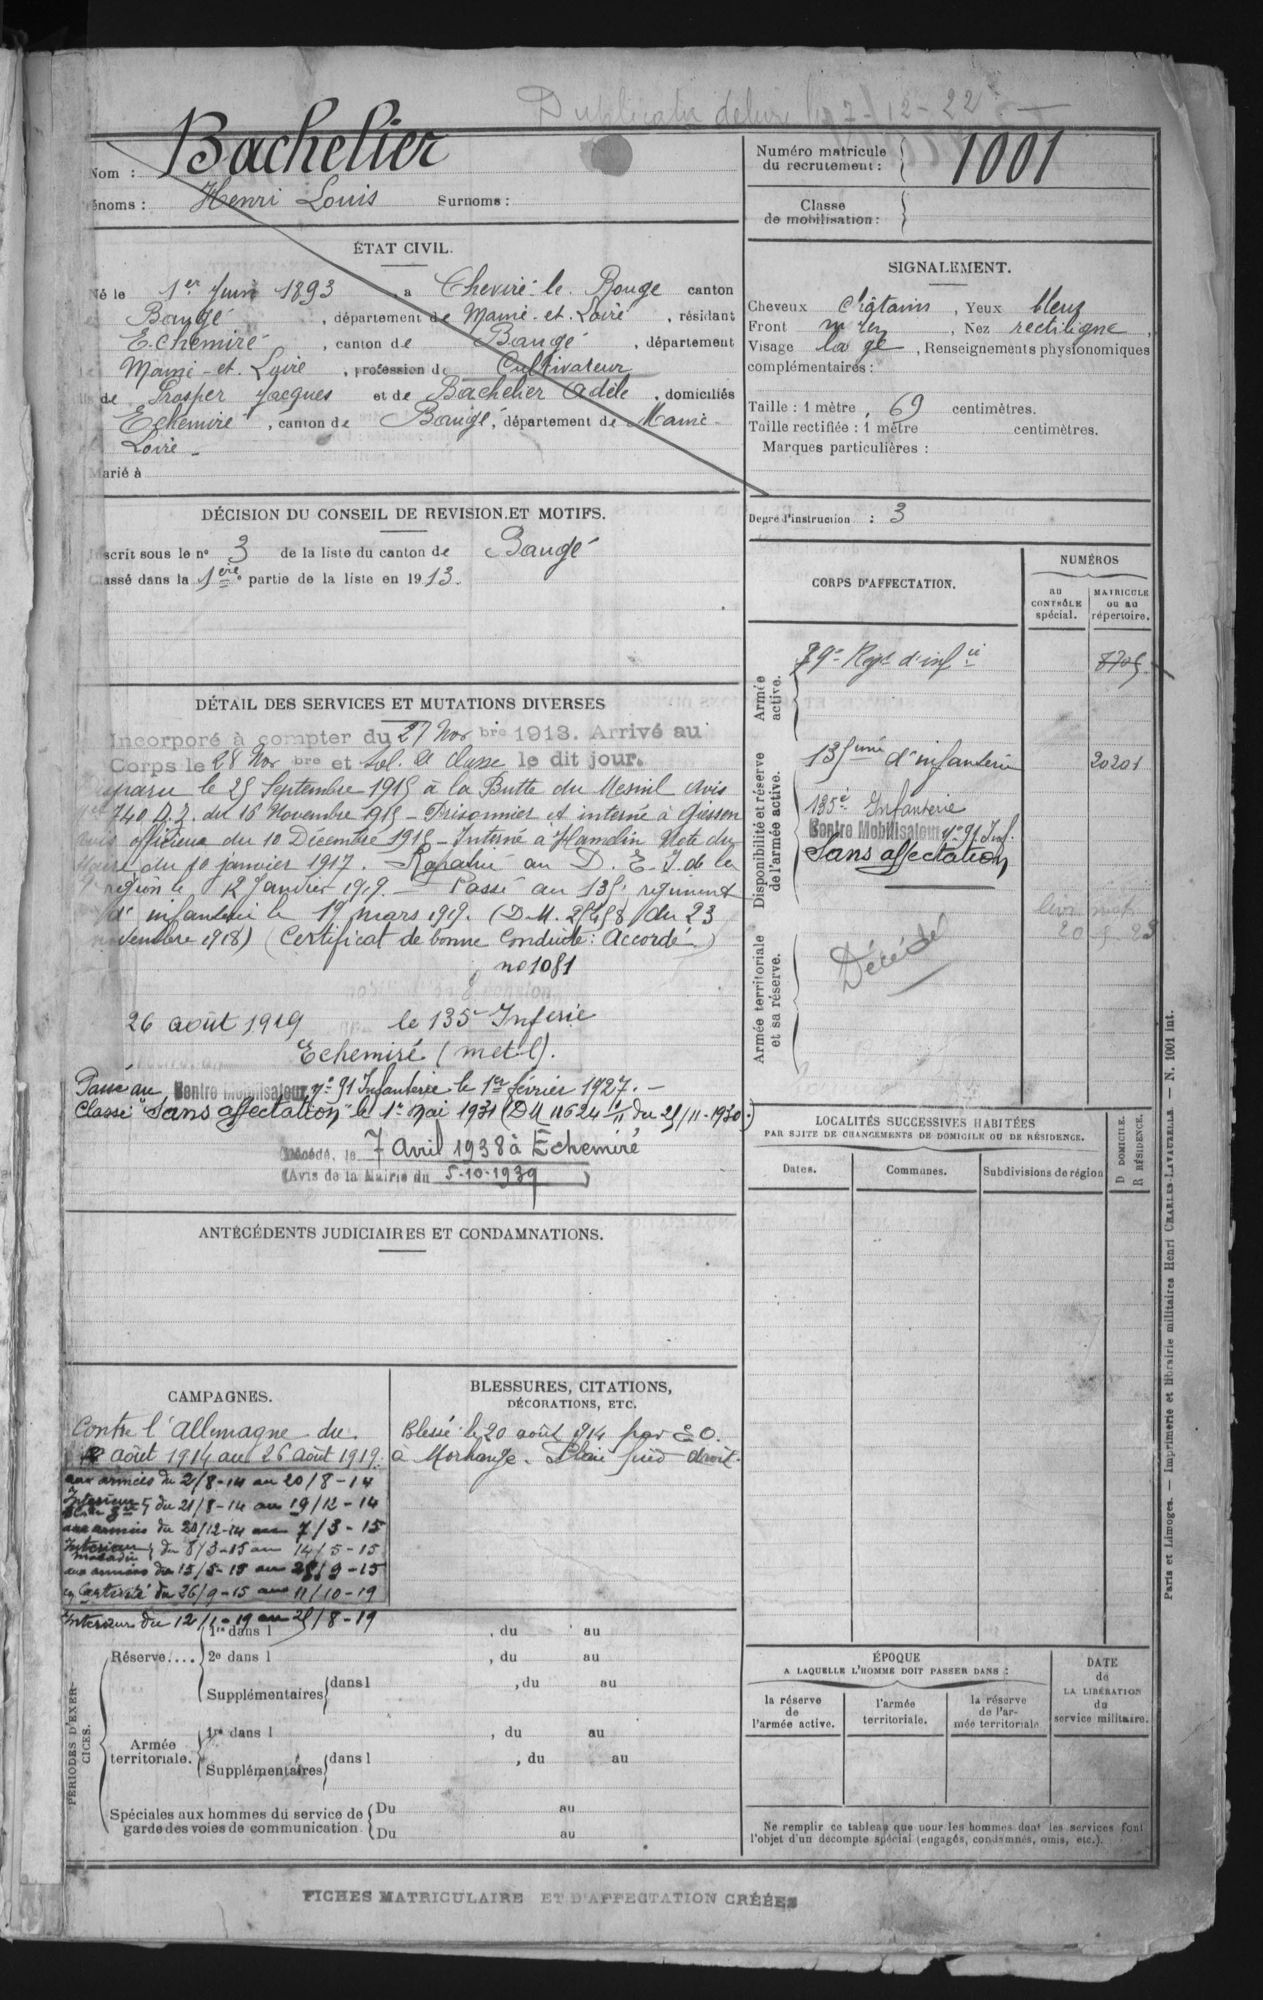 Duplicata délivré le 7-12-22
Nom : Bachelier
Prénoms : Henri Louis Surnoms :
Numéro matricule
du recrutement : 1001
Classe
de mobilisation :
ÉTAT CIVIL.
Né le 1er Juin 1893, à Cheviré-le-Rouge canton
Baugé, département de Maine-et-Loire, résidant
Echemiré, canton de Baugé, département
Maine-et-Loire, profession de Cultivateur
de Prosper Jacques et de Bachelier Adèle, domiciliés
Echemiré, canton de Baugé, département de Maine-
Loire-
Marié à
SIGNALEMENT.
Cheveux châtains, Yeux bleus
Front moyen, Nez rectiligne,
Visage large, Renseignements physionomiques
complémentaires :
Taille : 1 mètre, 69 centimètres.
Taille rectifiée : 1 mètre centimètres.
Marques particulières :
Degré d'instruction : 3
DÉCISION DU CONSEIL DE REVISION ET MOTIFS.
Inscrit sous le n° 3 de la liste du canton de Baugé
Classé dans la 1ère partie de la liste en 1913.
DÉTAIL DES SERVICES ET MUTATIONS DIVERSES
Incorporé à compter du 27 Novbre 1913. Arrivé au
Corps le 28 Novbre et sol. 2e classe le dit jour.
Disparu le 25 Septembre 1915 à la Butte du Mesnil Avis
740 D.Z. du 16 Novembre 1915 - Prisonnier et interné à Giessen
avis officieux du 10 Décembre 1915 - Interné à Hameln Note du
Maire du 10 janvier 1917. Rapatrié au D.E.I. de la
9e région le 12 Janvier 1919. - Passé au 135e régiment
d'infanterie le 19 mars 1919. (D.M. 25458 du 23
novembre 1918) (Certificat de bonne Conduite : Accordé)
no 1081
26 août 1919 le 135e Inferie
Echemiré (met l).
Passé au Centre Mobilisateur n° 91 Infanterie le 1er février 1927. -
Classé "Sans affectation" le 1er mai 1931 (DM 11624 du 25/11-1930.)
Décédé, le 7 Avril 1938 à Echemiré
(Avis de la Mairie du 5-10-1939)
CORPS D'AFFECTATION.
NUMÉROS
au
CONTRÔLE
spécial.
MATRICULE
ou au
répertoire.
Armée
active.
79e Regt d'infie 8705
Disponibilité et réserve
de l'armée active.
135ème d'infanterie 20201
135e Infanterie
Centre Mobilisateur n° 91 Inf.
Sans affectation
Armée territoriale
et sa réserve.
Décédé
LOCALITÉS SUCCESSIVES HABITÉES
PAR SUITE DE CHANGEMENTS DE DOMICILE OU DE RÉSIDENCE.
Dates. Communes. Subdivisions de région
D DOMICILE.
R RÉSIDENCE.
ANTÉCÉDENTS JUDICIAIRES ET CONDAMNATIONS.
CAMPAGNES.
Contre l'Allemagne du
2 août 1914 au 26 Août 1919.
aux armées du 2/8-14 au 20/8-14
Intérieur du 21/8-14 au 19/12-14
aux armées du 20/12-14 au 7/3-15
Intérieur malade du 8/3-15 au 14/5-15
aux armées du 15/5-15 au 25/9-15
en Captivité du 26/9-15 au 11/10-19
Intérieur du 12/1-19 au 25/8-19
BLESSURES, CITATIONS,
DÉCORATIONS, ETC.
Blessé le 20 août 1914 par E O.
à Morhange. Plaie pied droit.
PÉRIODES D'EXERCICES.
Réserve.... 1re dans l , du au
2e dans l , du au
Supplémentaires dans l , du au
Armée
territoriale. 1re dans l , du au
Supplémentaires dans l , du au
Spéciales aux hommes du service de
garde des voies de communication. Du au
Du au
ÉPOQUE
A LAQUELLE L'HOMME DOIT PASSER DANS :
la réserve
de
l'armée active.
l'armée
territoriale.
la réserve
de l'ar-
mée territoriale
DATE
de
LA LIBÉRATION
du
service militaire.
Ne remplir ce tableau que pour les hommes dont les services font
l'objet d'un décompte spécial (engagés, condamnés, omis, etc.).
Paris et Limoges. — Imprimerie et librairie militaires Henri CHARLES-LAVAUZELLE. — N. 1001 int.
FICHES MATRICULAIRE ET D'AFFECTATION CRÉÉES